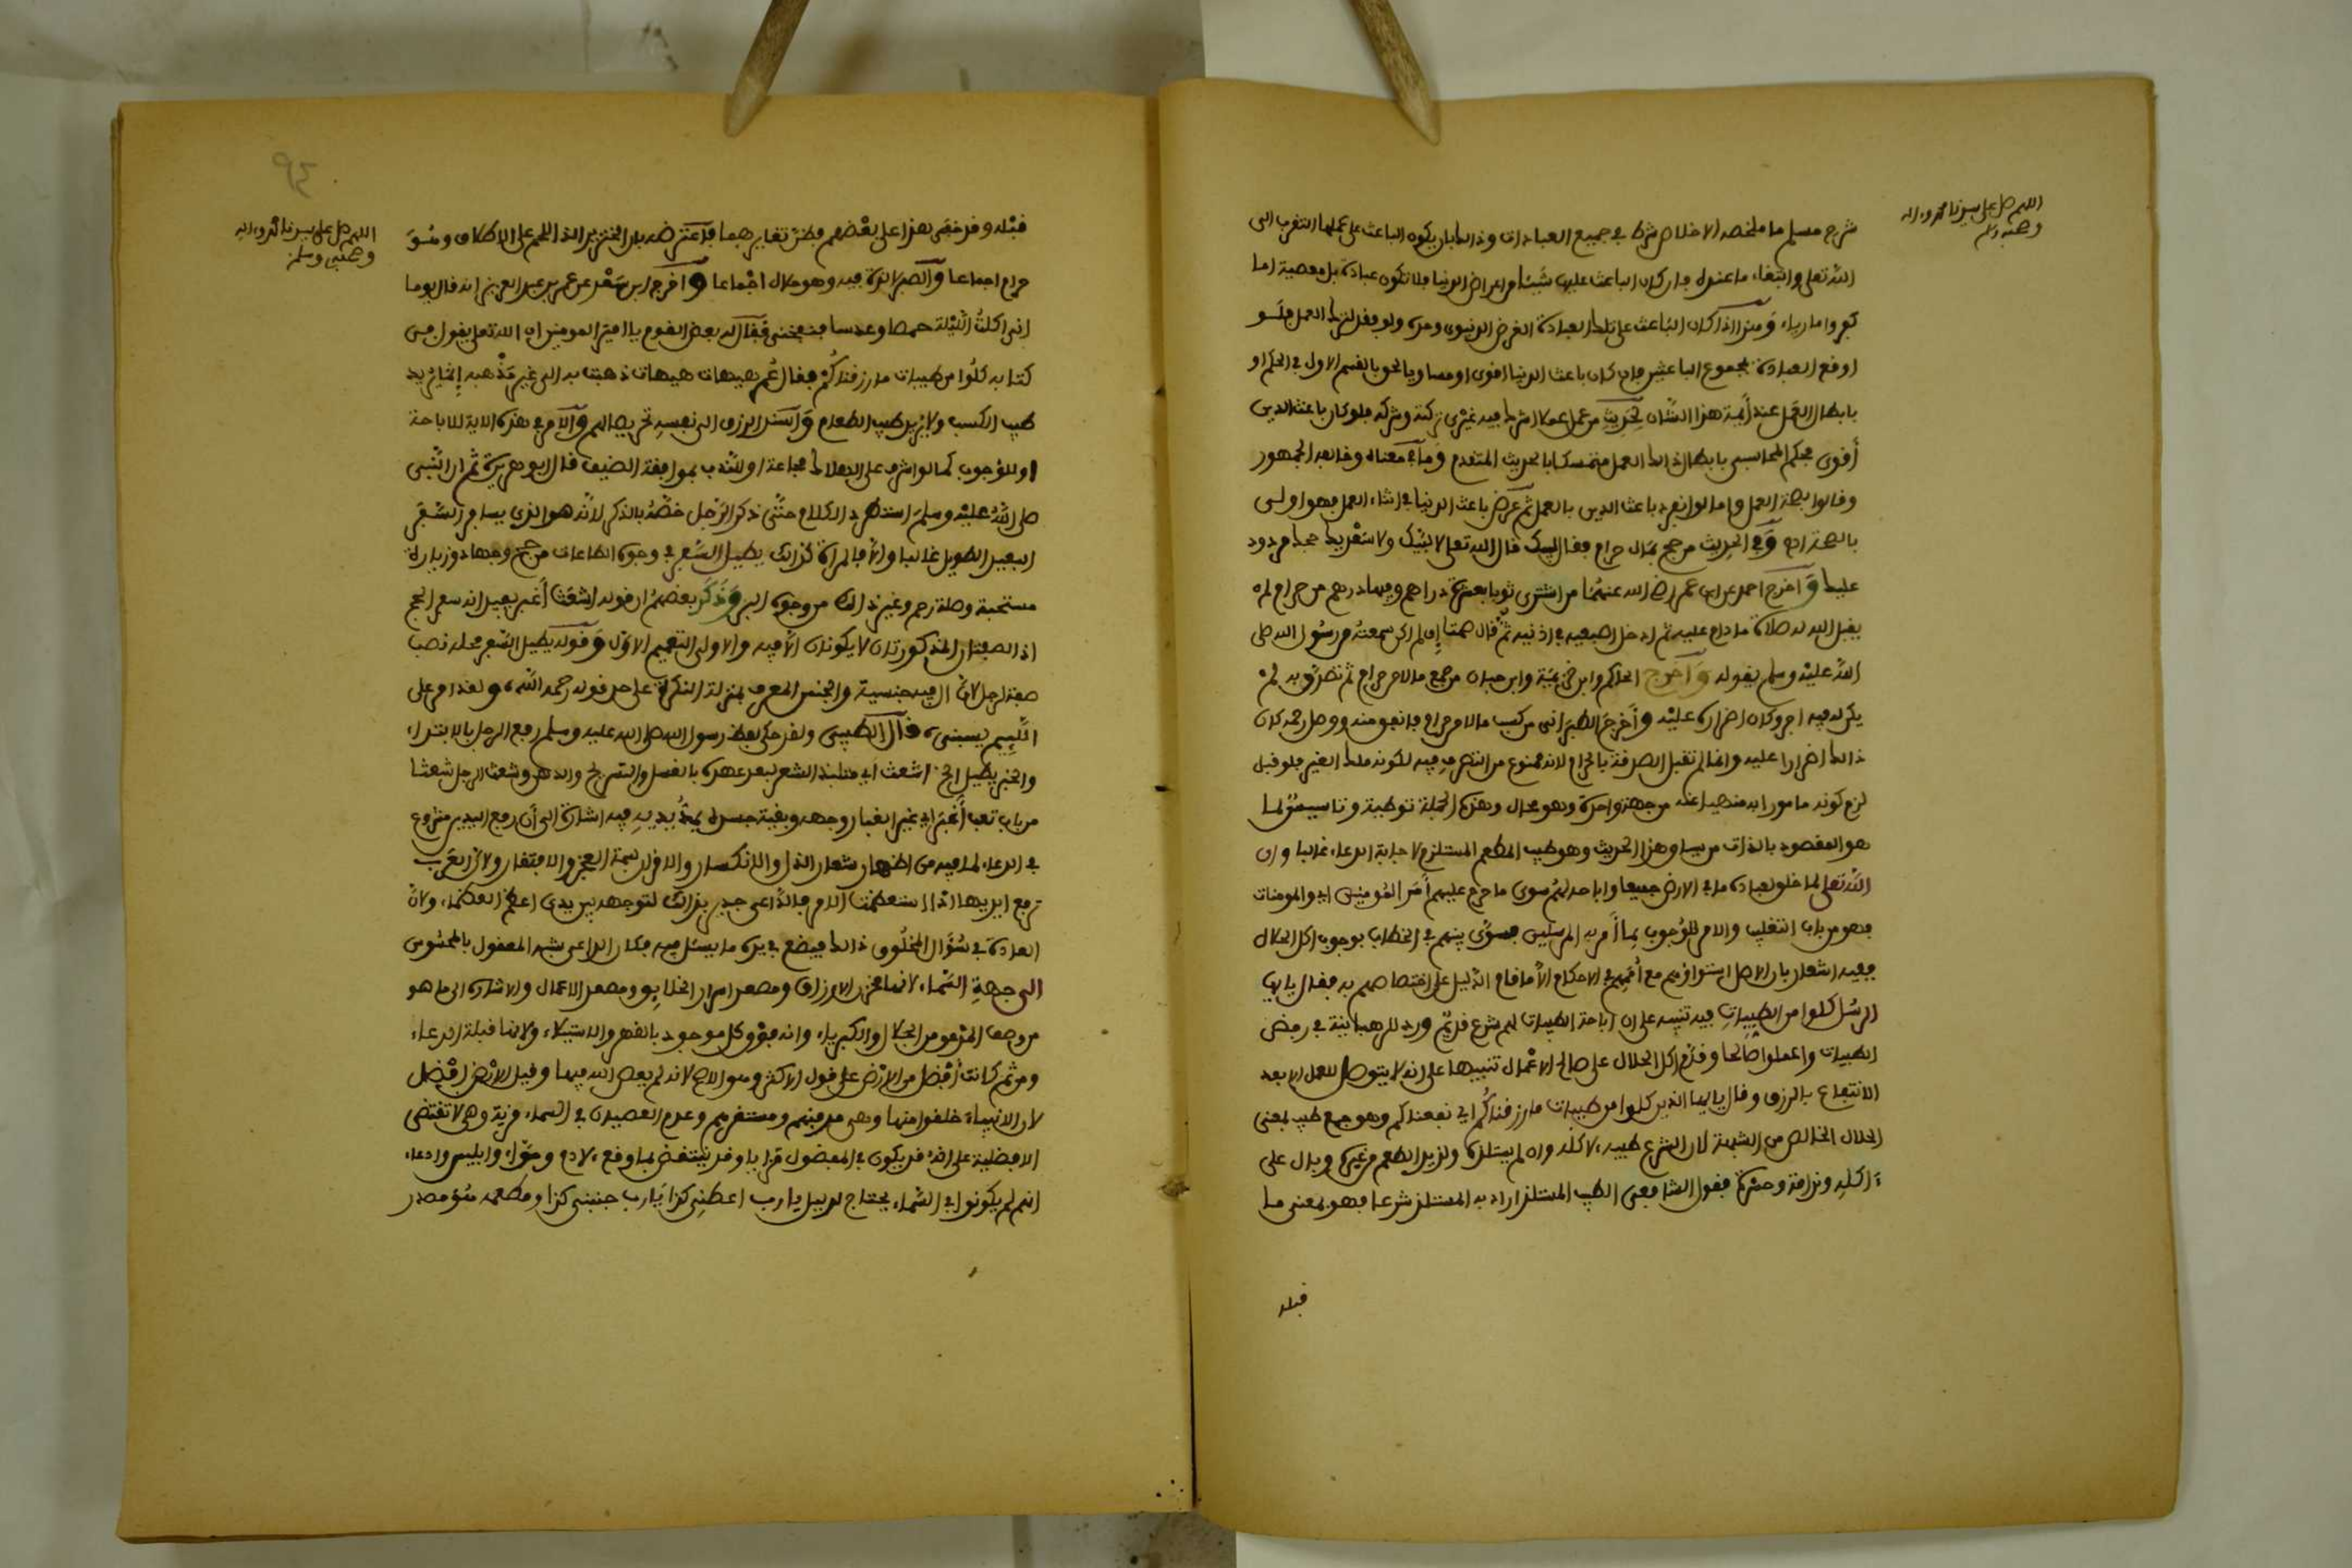 اللهم صل على سيدنا محمد وءاله
وصحبه وسلم
شرح مسلم ما ملخصه الاخلاص شرط في جميع العبادات وذالك بان يكون الباعث على عملها التقرب الى
الله تعلى وابتغاء ما عنده فان كان الباعث عليها شيئا من اعراض الدنيا فلا تكون عبادة بل معصية اما
كفر واما رياء ومن الذا كان الباعث على تلك العبادة الغرض الدنيوي وحده ولو فقد لترك العمل فلو
اوقع العبادة بمجموع الباعثين فان كان باعث الدنيا اقوى او مساويا الحق بالقسم الاول في الحكم او
بابطال العمل عند أيمة هذا الشان لحديث من عمل عملا اشرك فيه غيري تركته وشركه فلو كان باعث الدين
أقوى فحكم المحاسبي بابطال ذالك العمل متمسكا بالحديث المتقدم وما في معناه وخالفه الجمهور
وقالوا بصحة العمل واما لو انفرد باعث الدين بالعمل ثم عرض باعث الدنيا في اثناء العمل فهو اولى
بالصحة اه‍ وفي الحديث من حج بمال حرام فقال لبيك قال الله تعلى لا لبيك ولا سعديك حجك مردود
عليك وأخرج احمد عن ابن عمر رضي الله عنهما من اشترى ثوبا بعشرة دراهم وفيها درهم من حرام لم
يقبل الله له صلاة ما دام عليه ثم ادخل اصبعيه في اذنيه ثم قال صمتا إن لم اكن سمعته من رسول الله صلى
الله عليه وسلم يقوله وأخرج الحاكم وابن خزيمة وابن حبان من جمع مالا من حرام ثم تصدق به لم
يكن له فيه اجر وكان اصراره عليه وأخرج الطبراني من كسب مالا من حرام فانفق منه ووصل رحمه كان
ذالك اصرارا عليه وانما لم تقبل الصدقة بالحرام لانه ممنوع من التصرف فيه لكونه ملك الغير فلو قبل
لزم كونه مامورا به منهيا عنه من جهة واحدة وهو محال وهذه الجملة توطية وتاسيس لما
هو المقصود بالذات من سياق هذا الحديث وهو طيب المطعم المستلزم لاجابة الدعاء غالبا وان
الله تعلى لما خلق لعباده ما في الارض جميعا واباحه لهم سوى ما حرم عليهم أمر المومنين اي والمومنات
فهو من باب التغليب والامر للوجوب بما أمر به المرسلين فسوى بينهم في الخطاب بوجوب اكل الحلال
ففيه اشعار بان الاصل استواؤهم مع أممهم في الاحكام الا ما قام الدليل على اختصاصهم به فقال يايها
الرسل كلوا من الطيبات فيه تنبيه على ان اباحة الطيبات لهم شرع قديم ورد للرهبانية في رفض
الطيبات واعملوا صالحا وقدم اكل الحلال على صالح الاعمال تنبيها على انه لا يتوصل للعمل الا بعد
الانتفاع بالرزق وقال يايها الذين كلوا من طيبات ما رزقناكم اي نفعناكم وهو جمع طيب بمعنى
الحلال الخالص من الشبهة لان الشرع طيبه لاكله وان لم يستلذه ولذيذ الطعم من غيره وبال على
ءاكله وندامة وحسرة فقول الشافعي الطيب المستلذ اراد به المستلذ شرعا فهو بمعنى ما
قبله
اللهم صل على سيدنا محمد وءاله
وصحبه وسلم
قبله وقد خفي هذا على بعضهم فظن تغايرهما فاعترضه بان الخنزير الذ اللحم على الاطلاق وهو
حرام اجماعا والصبر لا لذة فيه وهو حلال اجماعا وأخرج ابن سعد عن عمر بن عبد العزيز انه قال يوما
اني اكلت الليلة حمصا وعدسا فنفخني فقال له بعض القوم يا امير المومنين ان الله تعلى يقول في
كتابه كلوا من طيبات ما رزقناكم فقال عمر هيهات هيهات ذهبت به الى غير مذهبه إنما يريد
طيب الكسب ولا يريد طيب الطعام واسند الرزق الى نفسه تحريضا لهم والامر في هذه الاية للاباحة
او للوجوب كما لو اشرف على الهلاك مجاعة او للندب بموافقة الضيف قال ابو هريرة ثم ان النبي
صلى الله عليه وسلم استطرد الكلام حتى ذكر الرجل خصه بالذكر لانه هو الذي يسافر السفر
البعيد الطويل غالبا والا فالمراة كذالك يطيل السفر في وجوه الطاعات من حج وجهاد وزيارة
مستحبة وصلة رحم وغير ذالك من وجوه البر وذكر بعضهم ان قوله اشعث أغبر يفيد انه سفر الحج
اذ الصفتان المذكورتان لا يكونان الا فيه والاولى التعميم الاول وقوله يطيل السفر محله نصب
صفة لرجل لان ال فيه جنسية والجنس المعرف بمنزلة النكرة على حد قوله رحمه الله ولقد امر على
اللئيم يسبني قال الطيبي ولقد حكى لفظ رسول الله صلى الله عليه وسلم رفع الرجل بالابتداء
والخبر يطيل الخ اشعث اي متلبد الشعر لبعد عهده بالغسل والتسريح والدهن وشعث الرجل شعثا
من باب تعب أغبر اي غير الغبار وجهه وبقية جسده يمد يديه فيه اشارة الى أن رفع اليدين مشروع
في الدعاء لما فيه من اظهار شعار الذل والانكسار والاقرار بسمة العجز والافتقار ولان العرب
ترفع ايديها اذا استعظمت الامر فالداعي جدير بذالك لتوجهه بين يدي اعظم العظماء ولان
العادة في سؤال المخلوق ذالك فيضع في يده ما يسئل فيه فكان الداعي شبه المعقول بالمحسوس
الى جهة السماء لانها مخزن الارزاق ومصعد اسرار الخلايق ومصعد الاعمال والاشارة الى ما هو
من وصف المدعو من الجلال والكبرياء وانه فوق كل موجود بالقهر والاستيلاء ولانها قبلة الدعاء
ومن ثم كانت أفضل من الارض على قول الاكثر وهو الاصح لانه لم يعص الله فيها وقيل الارض افضل
لان الانبياء خلقوا منها وهي مدفنهم ومستقرهم وعدم العصيان في السماء مزية وهي لا تقتضي
الافضلية على انه قد يكون في المفضول مزايا وقد ينتقض بما وقع لادم وحواء وابليس وادعاء
انهم لم يكونوا في السماء يحتاج لدليل يا رب اعطني كذا يا رب جنبني كذا ومطعمه هو مصدر